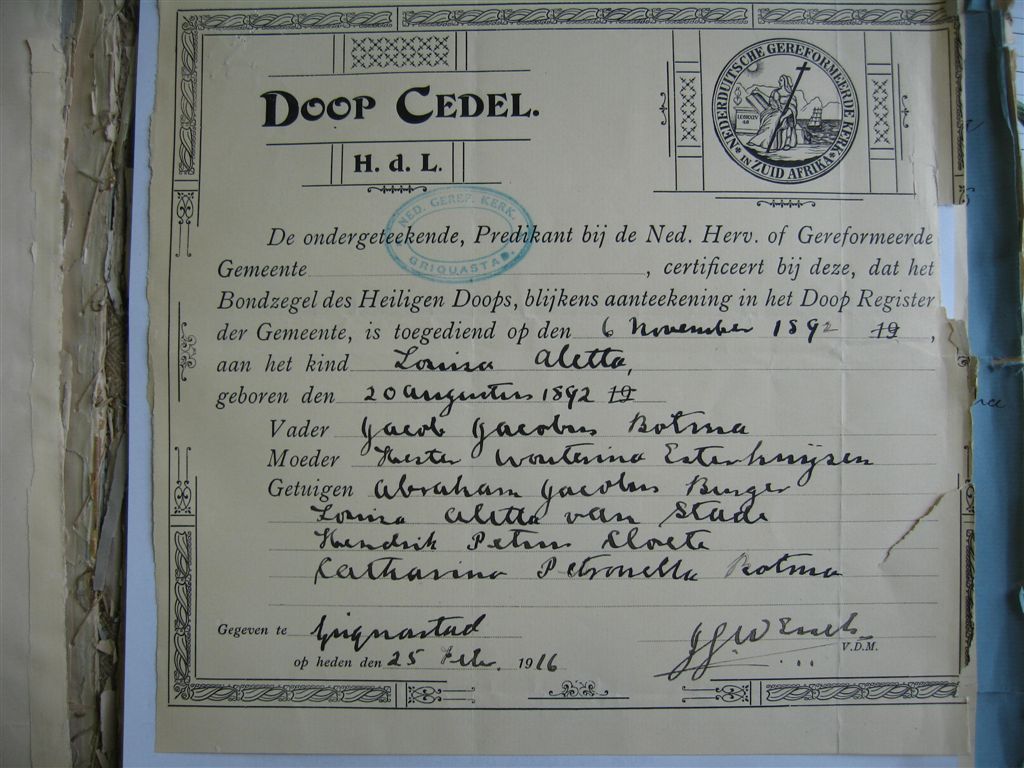 DOOP CEDEL.
H. d. L.
NEDERDUITSCHE GEREFORMEERDE KERK
IN ZUID AFRIKA
NED. GEREF. KERK.
GRIQUASTAD.
De ondergeteekende, Predikant bij de Ned. Herv. of Gereformeerde
Gemeente , certificeert bij deze, dat het
Bondzegel des Heiligen Doops, blijkens aanteekening in het Doop Register
der Gemeente, is toegediend op den 6 November 1892 19 ,
aan het kind Louisa Aletta,
geboren den 20 Augustus 1892 19
Vader Jacob Jacobus Botma
Moeder Hester Wouterina Esterhuijsen
Getuigen Abraham Jacobus Burger
Louisa Aletta van Stade
Hendrik Petrus Cloete
Catharina Petronella Botma
Gegeven te Griquastad
op heden den 25 Feb. 1916
V.D.M.